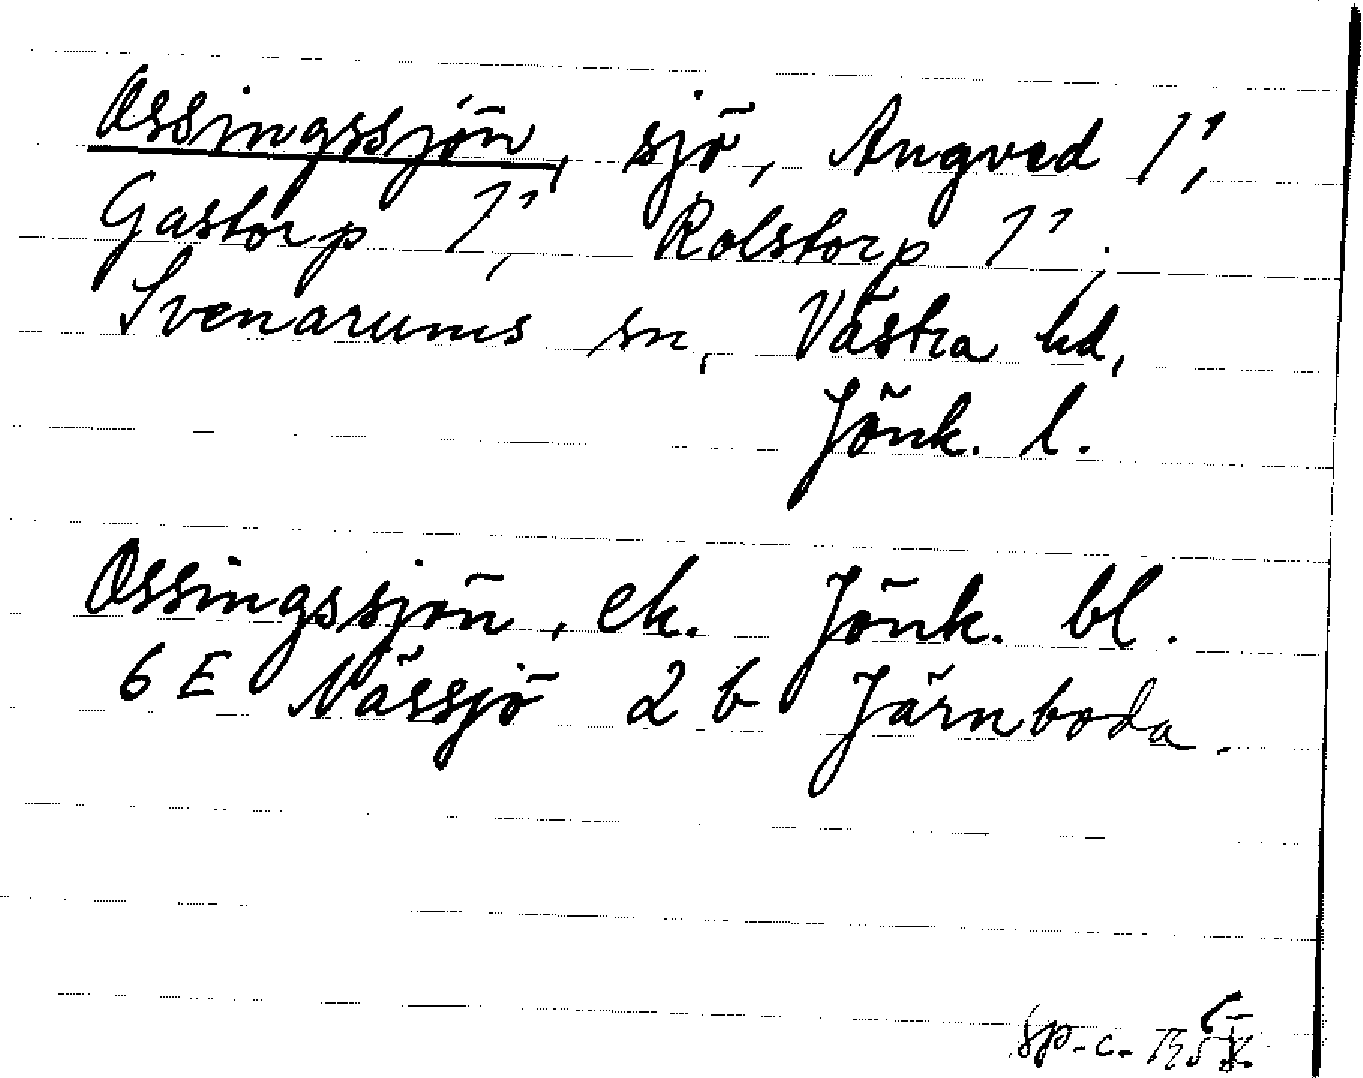 Ossingssjön, sjö, Angved 1¹,
Gastorp 1¹, Rolstorp 1¹;
Svenarums sn, Västra hd,
Jönk. l.
Ossingssjön, ek. Jönk. bl.
6 E Nässjö 2 b Järnboda.